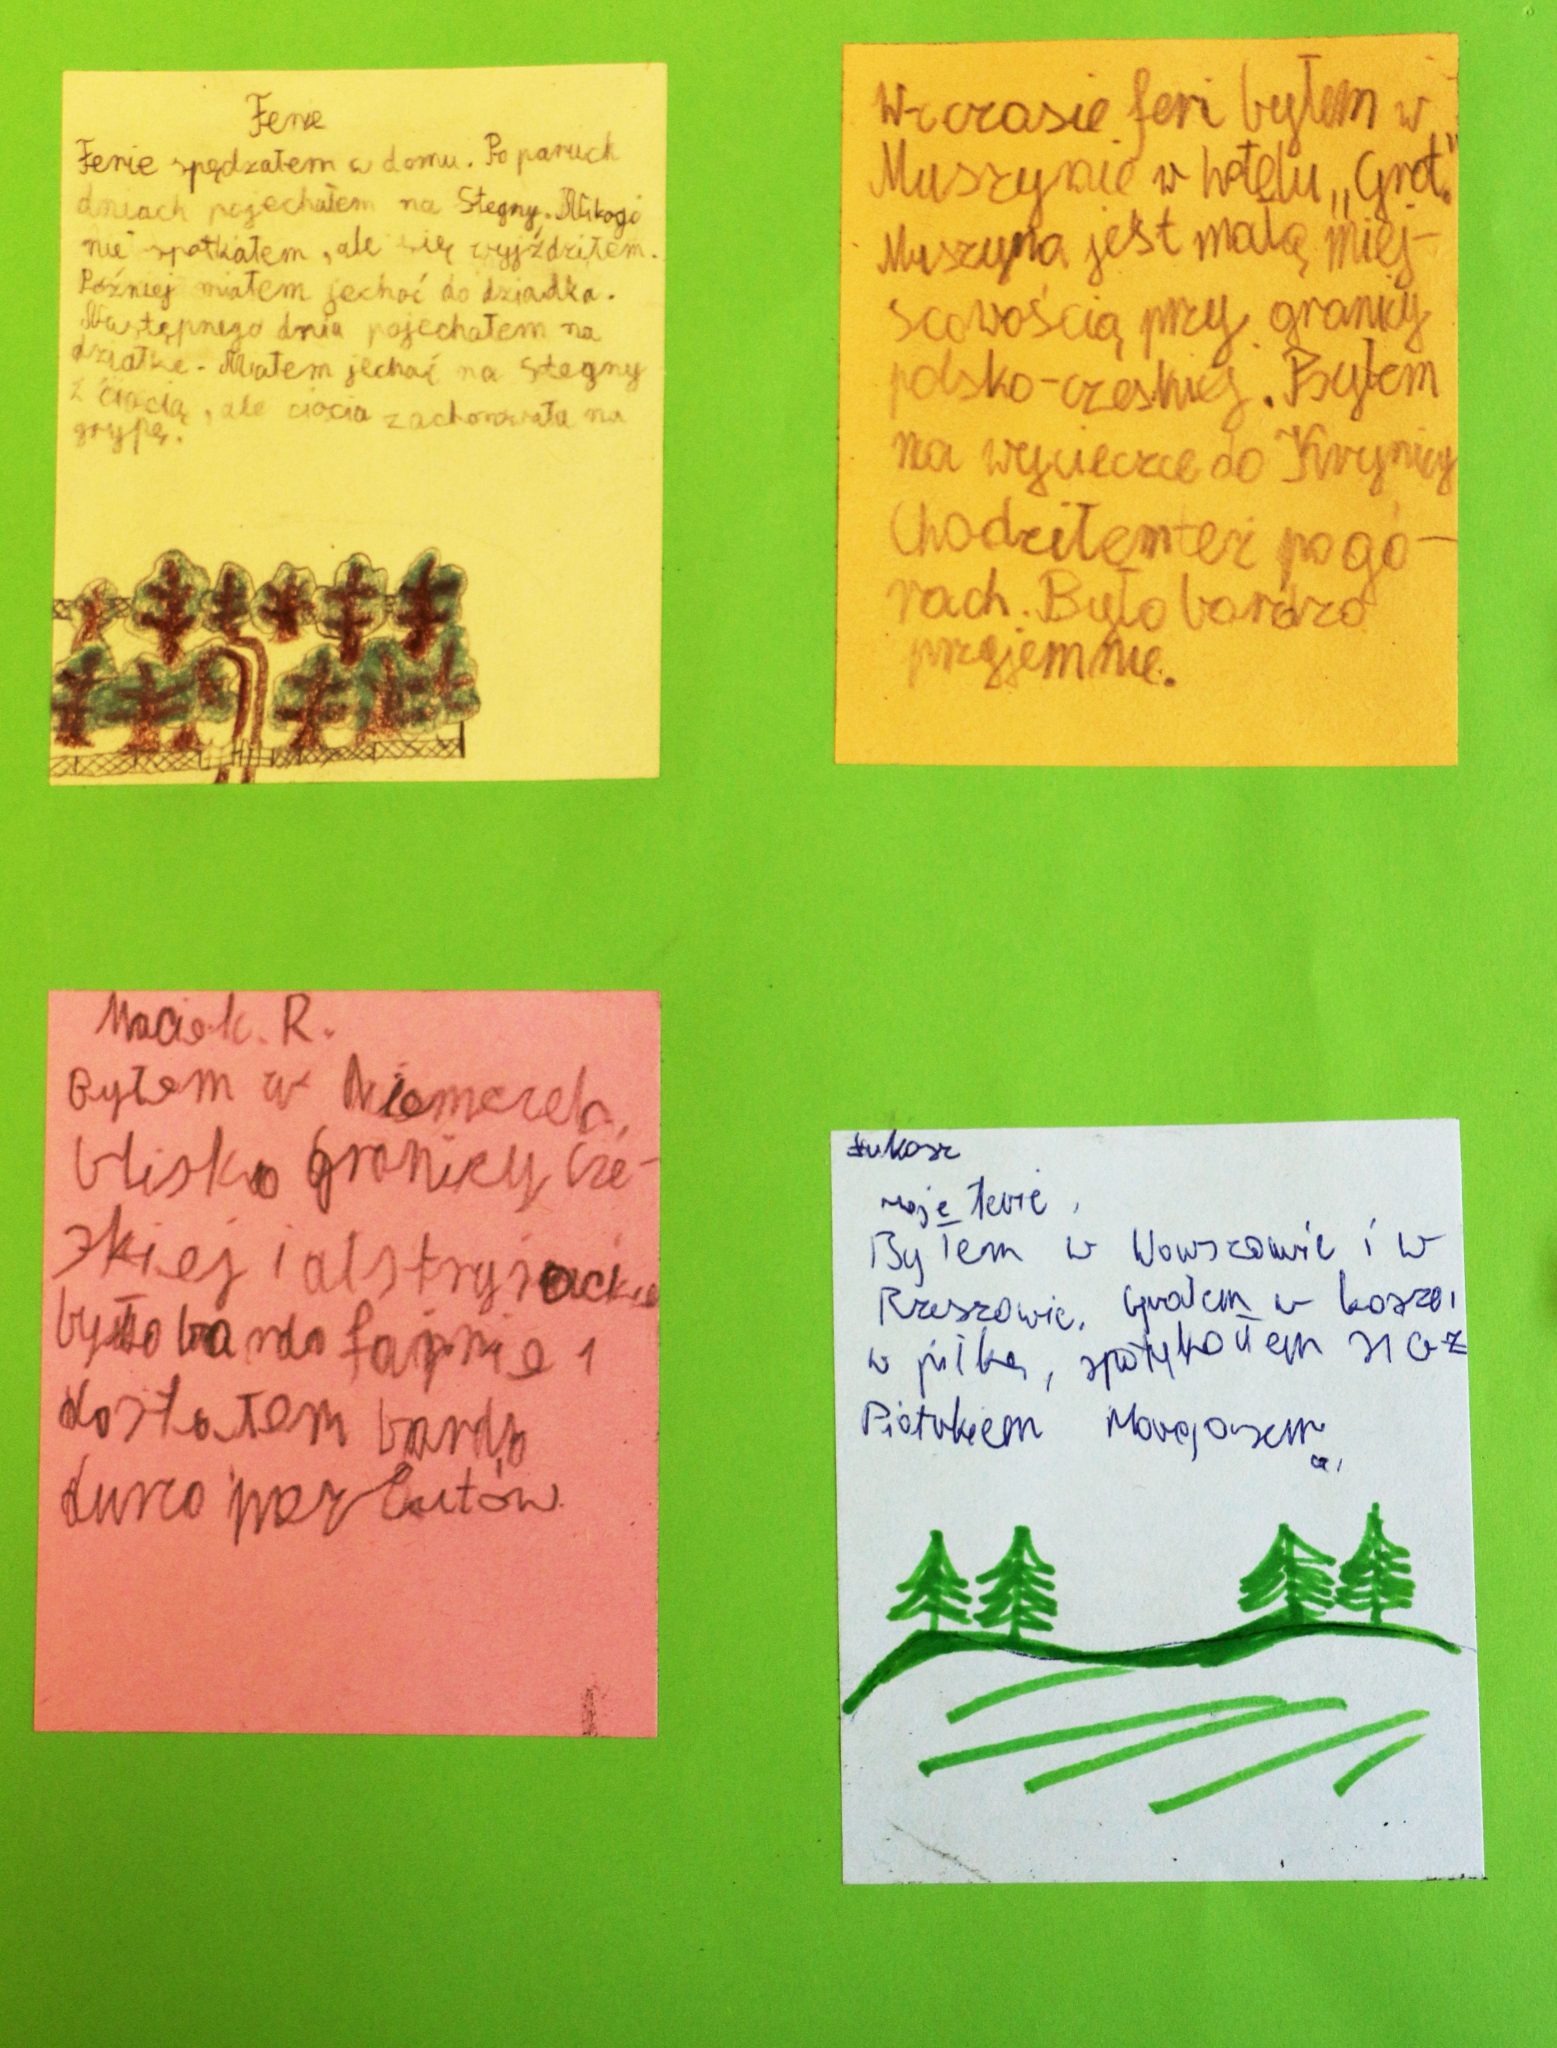 Ferie
Ferie spędzałem w domu. Po paruch
dniach pojechałem na Stegny. Nikogo
nie spotkałem, ale się wyjździłem.
Później miałem jechać do dziadka.
Następnego dnia pojechałem na
działkę. Miałem jechać na Stegny
z ciocią, ale ciocia zachorowała na
grypę.
W czasie feri byłem w
Muszynie w hotelu „Grot."
Muszyna jest małą miej-
scowością przy granicy
polsko-czeskiej. Byłem
na wycieczce do Krynicy
Chodziłem też po gó-
rach. Było bardzo
przyjemnie.
Maciek. R.
Byłem w Niemczech,
blisko granicy cze-
skiej i alstryjackie
było bardo fajnie i
dostałem bardzo
dużo prezentów
Łukasz
Moje ferie
Byłem w Warszawie i w
Rzeszowie. Grałem w kosza i
w piłkę, spotykałem się z
Piotrkiem